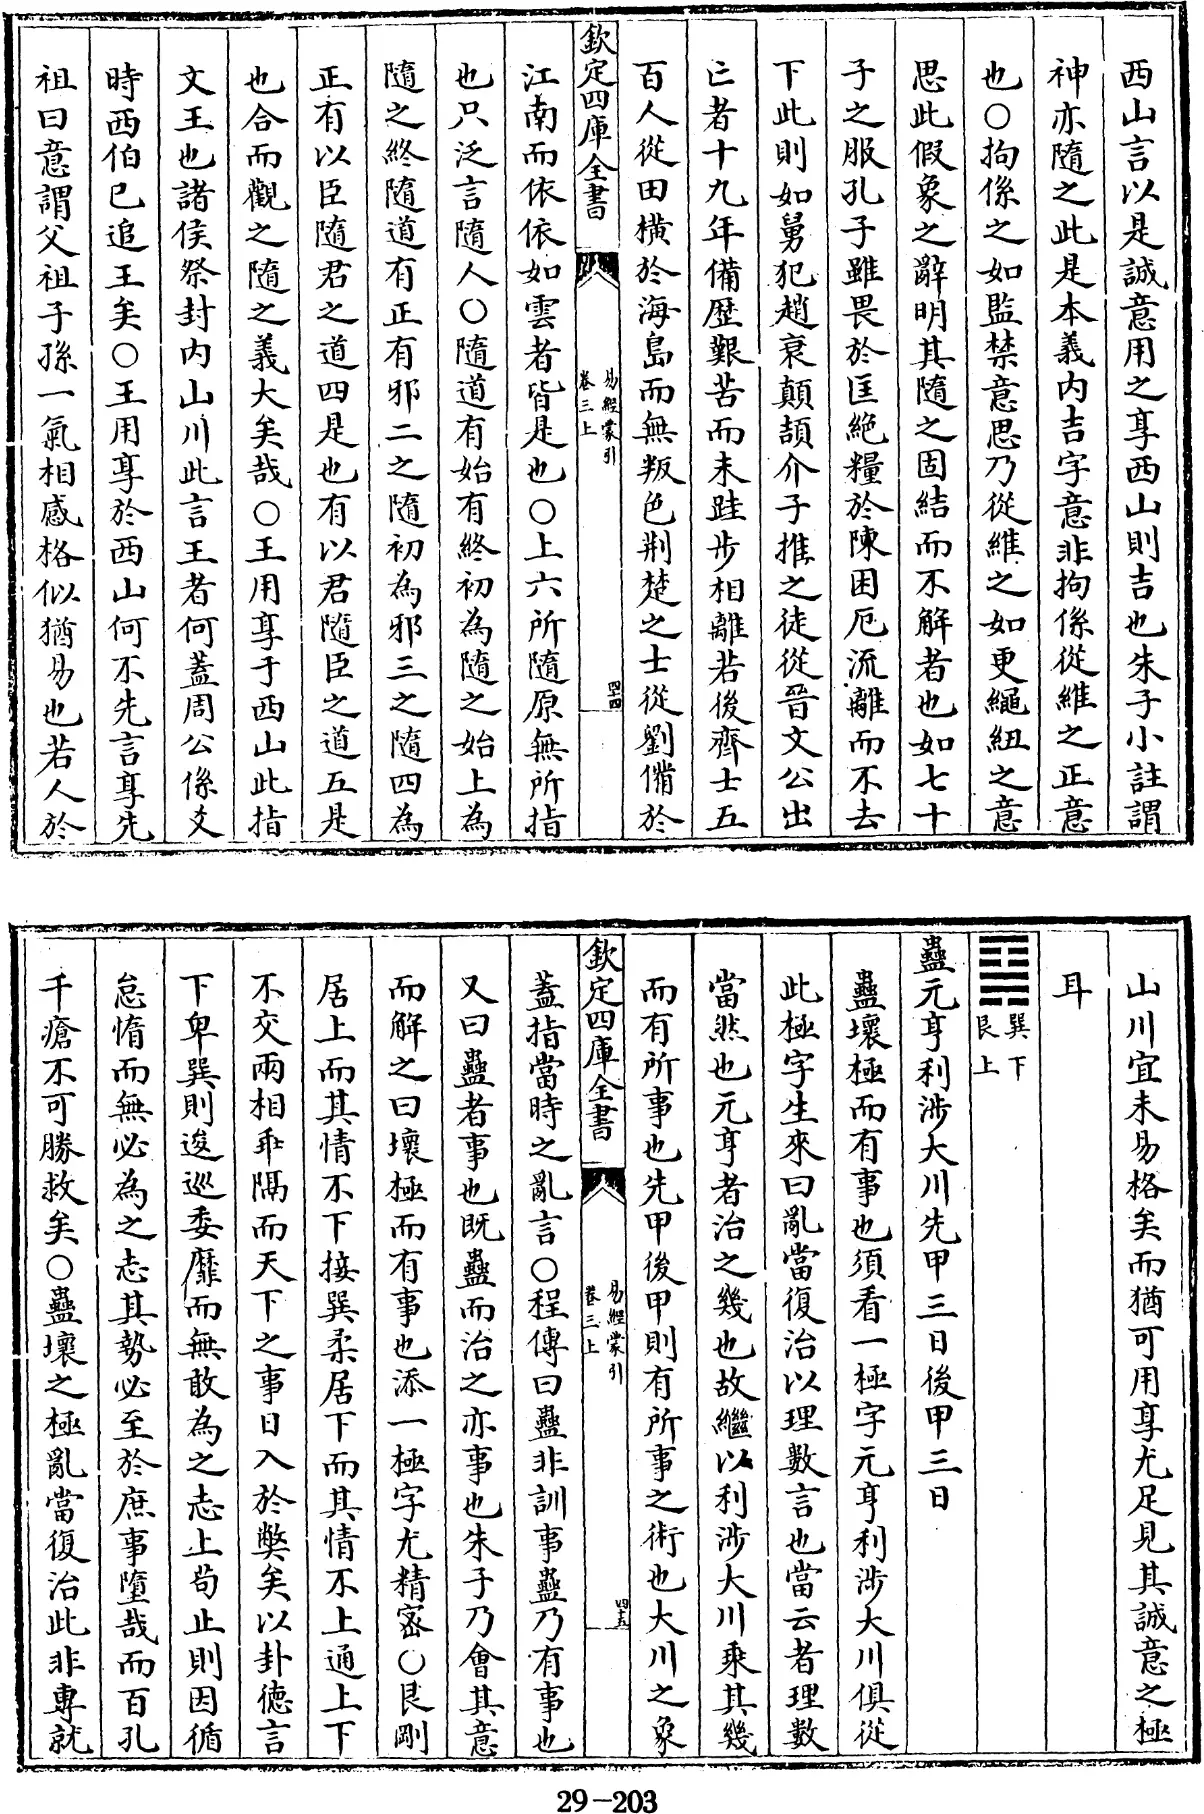 西山言以是誠意用之享西山則吉也朱子小註謂
神亦隨之此是本義内吉字意非拘係從維之正意
也○拘係之如監禁意思乃從維之如更繩紐之意
思此假象之辭明其隨之固結而不解者也如七十
子之服孔子雖畏於匡絶糧於陳困厄流離而不去
下此則如舅犯趙衰顛頡介子推之徒從晉文公出
亡者十九年備歴艱苦而未跬步相離若後齊士五
百人從田横於海島而無叛色荆楚之士從劉備於
欽定四庫全書
易經蒙引
卷三上
四十四
江南而依依如雲者皆是也○上六所隨原無所指
也只泛言隨人○隨道有始有終初為隨之始上為
隨之終隨道有正有邪二之隨初為邪三之隨四為
正有以臣隨君之道四是也有以君隨臣之道五是
也合而觀之隨之義大矣哉○王用享于西山此指
文王也諸侯祭封内山川此言王者何蓋周公係爻
時西伯已追王矣○王用享於西山何不先言享先
祖曰意謂父祖子孫一氣相感格似猶易也若人於
山川宜未易格矣而猶可用享尤足見其誠意之極
耳
䷑
巽下
艮上
蠱元亨利涉大川先甲三日後甲三日
蠱壞極而有事也須看一極字元亨利涉大川俱從
此極字生來曰亂當復治以理數言也當云者理數
當然也元亨者治之幾也故繼以利涉大川乘其幾
而有所事也先甲後甲則有所事之術也大川之象
欽定四庫全書
易經蒙引
卷三上
四十五
蓋指當時之亂言○程傳曰蠱非訓事蠱乃有事也
又曰蠱者事也既蠱而治之亦事也朱子乃會其意
而解之曰壞極而有事也添一極字尤精密○艮剛
居上而其情不下接巽柔居下而其情不上通上下
不交兩相乖隔而天下之事日入於弊矣以卦徳言
下卑巽則逡巡委靡而無敢為之志上苟止則因循
怠惰而無必為之志其勢必至於庶事墮哉而百孔
千瘡不可勝救矣○蠱壞之極亂當復治此非專就
29-203